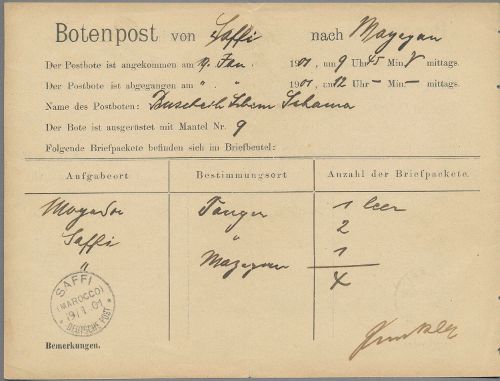 Botenpost von Saffi nach Mazagan
Der Postbote ist angekommen am 19. Jan. 1901, um 9 Uhr 45 Min V mittags.
Der Postbote ist abgegangen am " " 1901 um 12 Uhr – Min. – mittags.
Name des Postboten:
Der Bote ist ausgerüstet mit Mantel Nr. 9
Folgende Briefpackete befinden sich im Briefbeutel:
Aufgabeort Bestimmungsort Anzahl der Briefpackete.
Mogador Tanger 1 leer
Saffi " 2
" Mazagan 1
4
SAFFI
(MAROCCO)
19/1 01
* DEUTSCHE POST *
Bemerkungen.